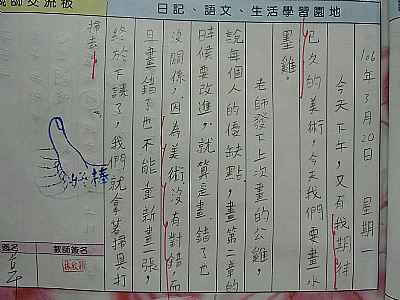 教師交流板
日記、語文、生活學習園地
106年3月20日 星期一
今天下午,又有我期待
已久的美術,今天我們要畫水
墨雞。
老師發下上次畫的公雞,
說每個人的優缺點,畫第二章的
時候要改進,就算是畫錯了也
沒關係,因為美術沒有對錯,而
且畫錯了也不能重新畫一張,
終於下課了,我們就拿著掃具打
掃去
棒
教師簽名
簽名